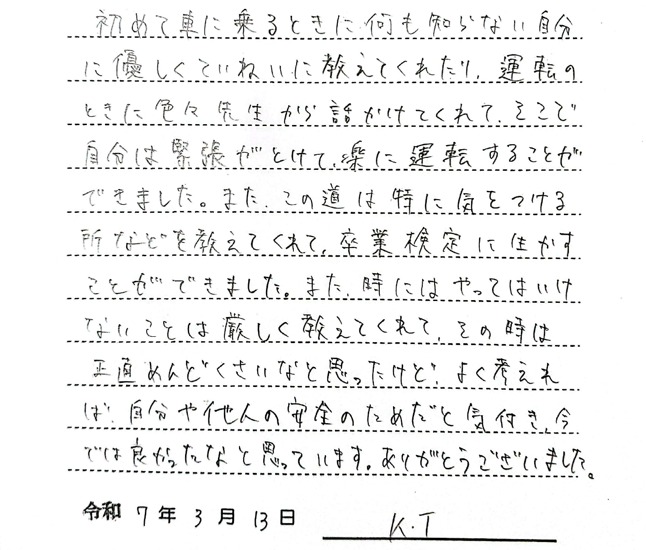 初めて車に乗るときに何も知らない自分
に優しくていねいに教えてくれたり、運転の
ときに色々先生から話かけてくれて、そこで
自分は緊張がとけて、楽に運転することが
できました。また、この道は特に気をつける
所などを教えてくれて、卒業検定に生かす
ことができました。また、時にはやってはいけ
ないことは厳しく教えてくれて、その時は
正直めんどくさいなと思ったけど、よく考えれ
ば、自分や他人の安全のためだと気付き、今
では良かったなと思っています。ありがとうございました。
令和 7年 3月 13日 K.T